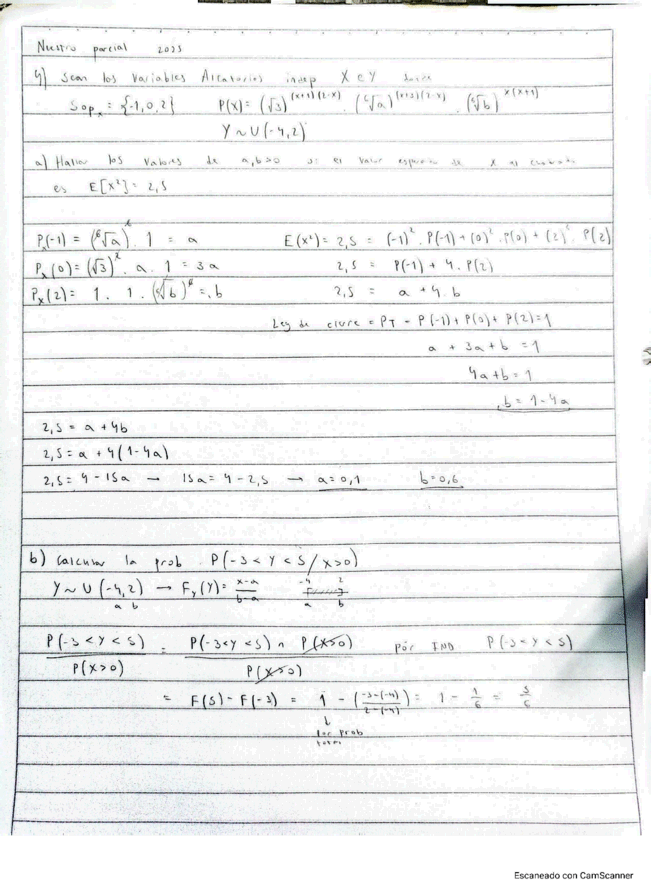 Nuestro parcial 2023
4) Sean las Variables Aleatorias indep X e Y donde
Sop_x = {-1,0,2} P(X) = (√3)^(x+1)(2-x) . (⁶√a)^(x+2)(2-x) . (⁶√b)^x(x+1)
Y ~ U(-4,2)
a) Hallar los valores de a,b>0 si el valor esperado de x al cuadrado
es E[x²] = 2,5
P_x(-1) = (⁶√a)^6 . 1 = a
E(x²) = 2,5 = (-1)² . P(-1) + (0)² . P(0) + (2)² . P(2)
P_x(0) = (√3)² . a . 1 = 3a
2,5 = P(-1) + 4 . P(2)
P_x(2) = 1 . 1 . (⁶√b)^6 = b
2,5 = a + 4 . b
Ley de cierre = PT = P(-1) + P(0) + P(2) = 1
a + 3a + b = 1
4a + b = 1
b = 1-4a
2,5 = a + 4b
2,5 = a + 4(1-4a)
2,5 = 4 - 15a → 15a = 4 - 2,5 → a = 0,1 b = 0,6
b) Calcular la prob P(-3 < Y < 5 / X>0)
Y ~ U(-4,2) → F_Y(Y) = x-a / b-a -4 2
a b a b
P(-3 < Y < 5) / P(X>0) = P(-3<Y<5) ∩ P(X>0) / P(X>0) Por IND P(-3 < Y < 5)
= F(5) - F(-3) = 1 - (-3-(-4) / 2-(-4)) = 1 - 1/6 = 5/6
↓
por prob
Escaneado con CamScanner